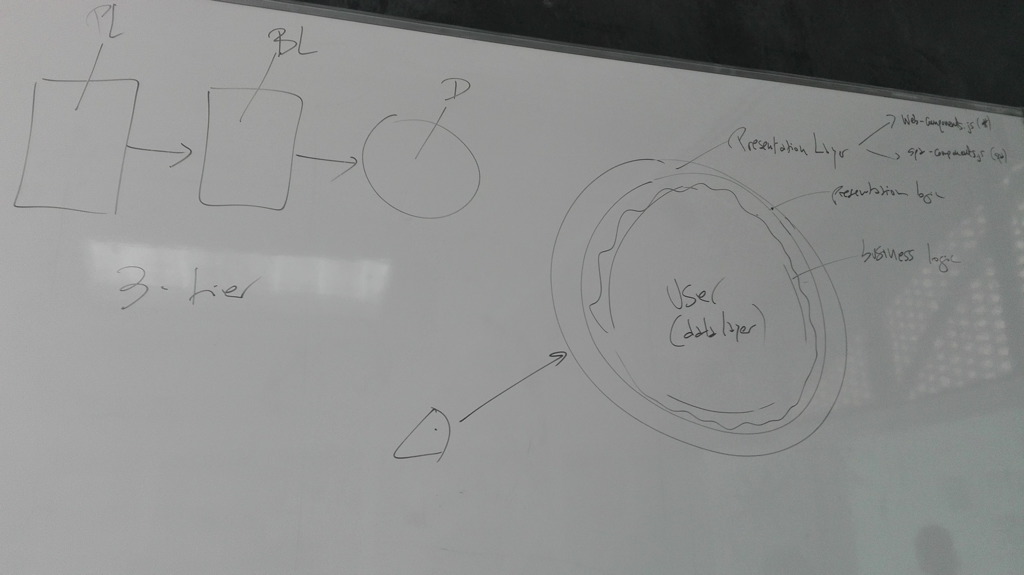 PL
BL
D
3-tier
Presentation Layer
web-components.js (*)
spa-components.js
Presentation logic
business logic
User
(data layer)